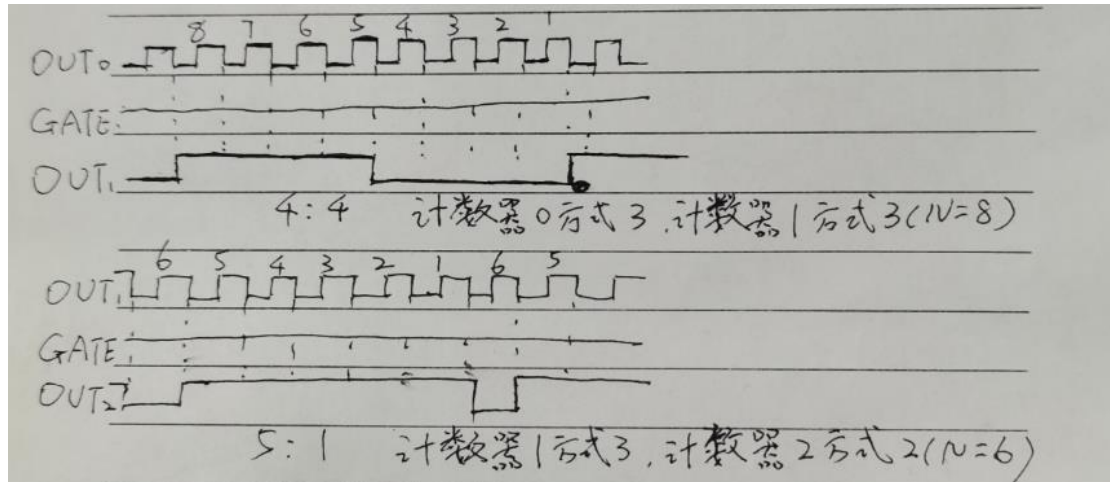 8 7 6 5 4 3 2 1
OUT₀
GATE₁
OUT₁
4:4 计数器0方式3.计数器1方式3(N=8)
6 5 4 3 2 1 6 5
OUT₁
GATE
OUT₂
5:1 计数器1方式3,计数器2方式2(N=6)